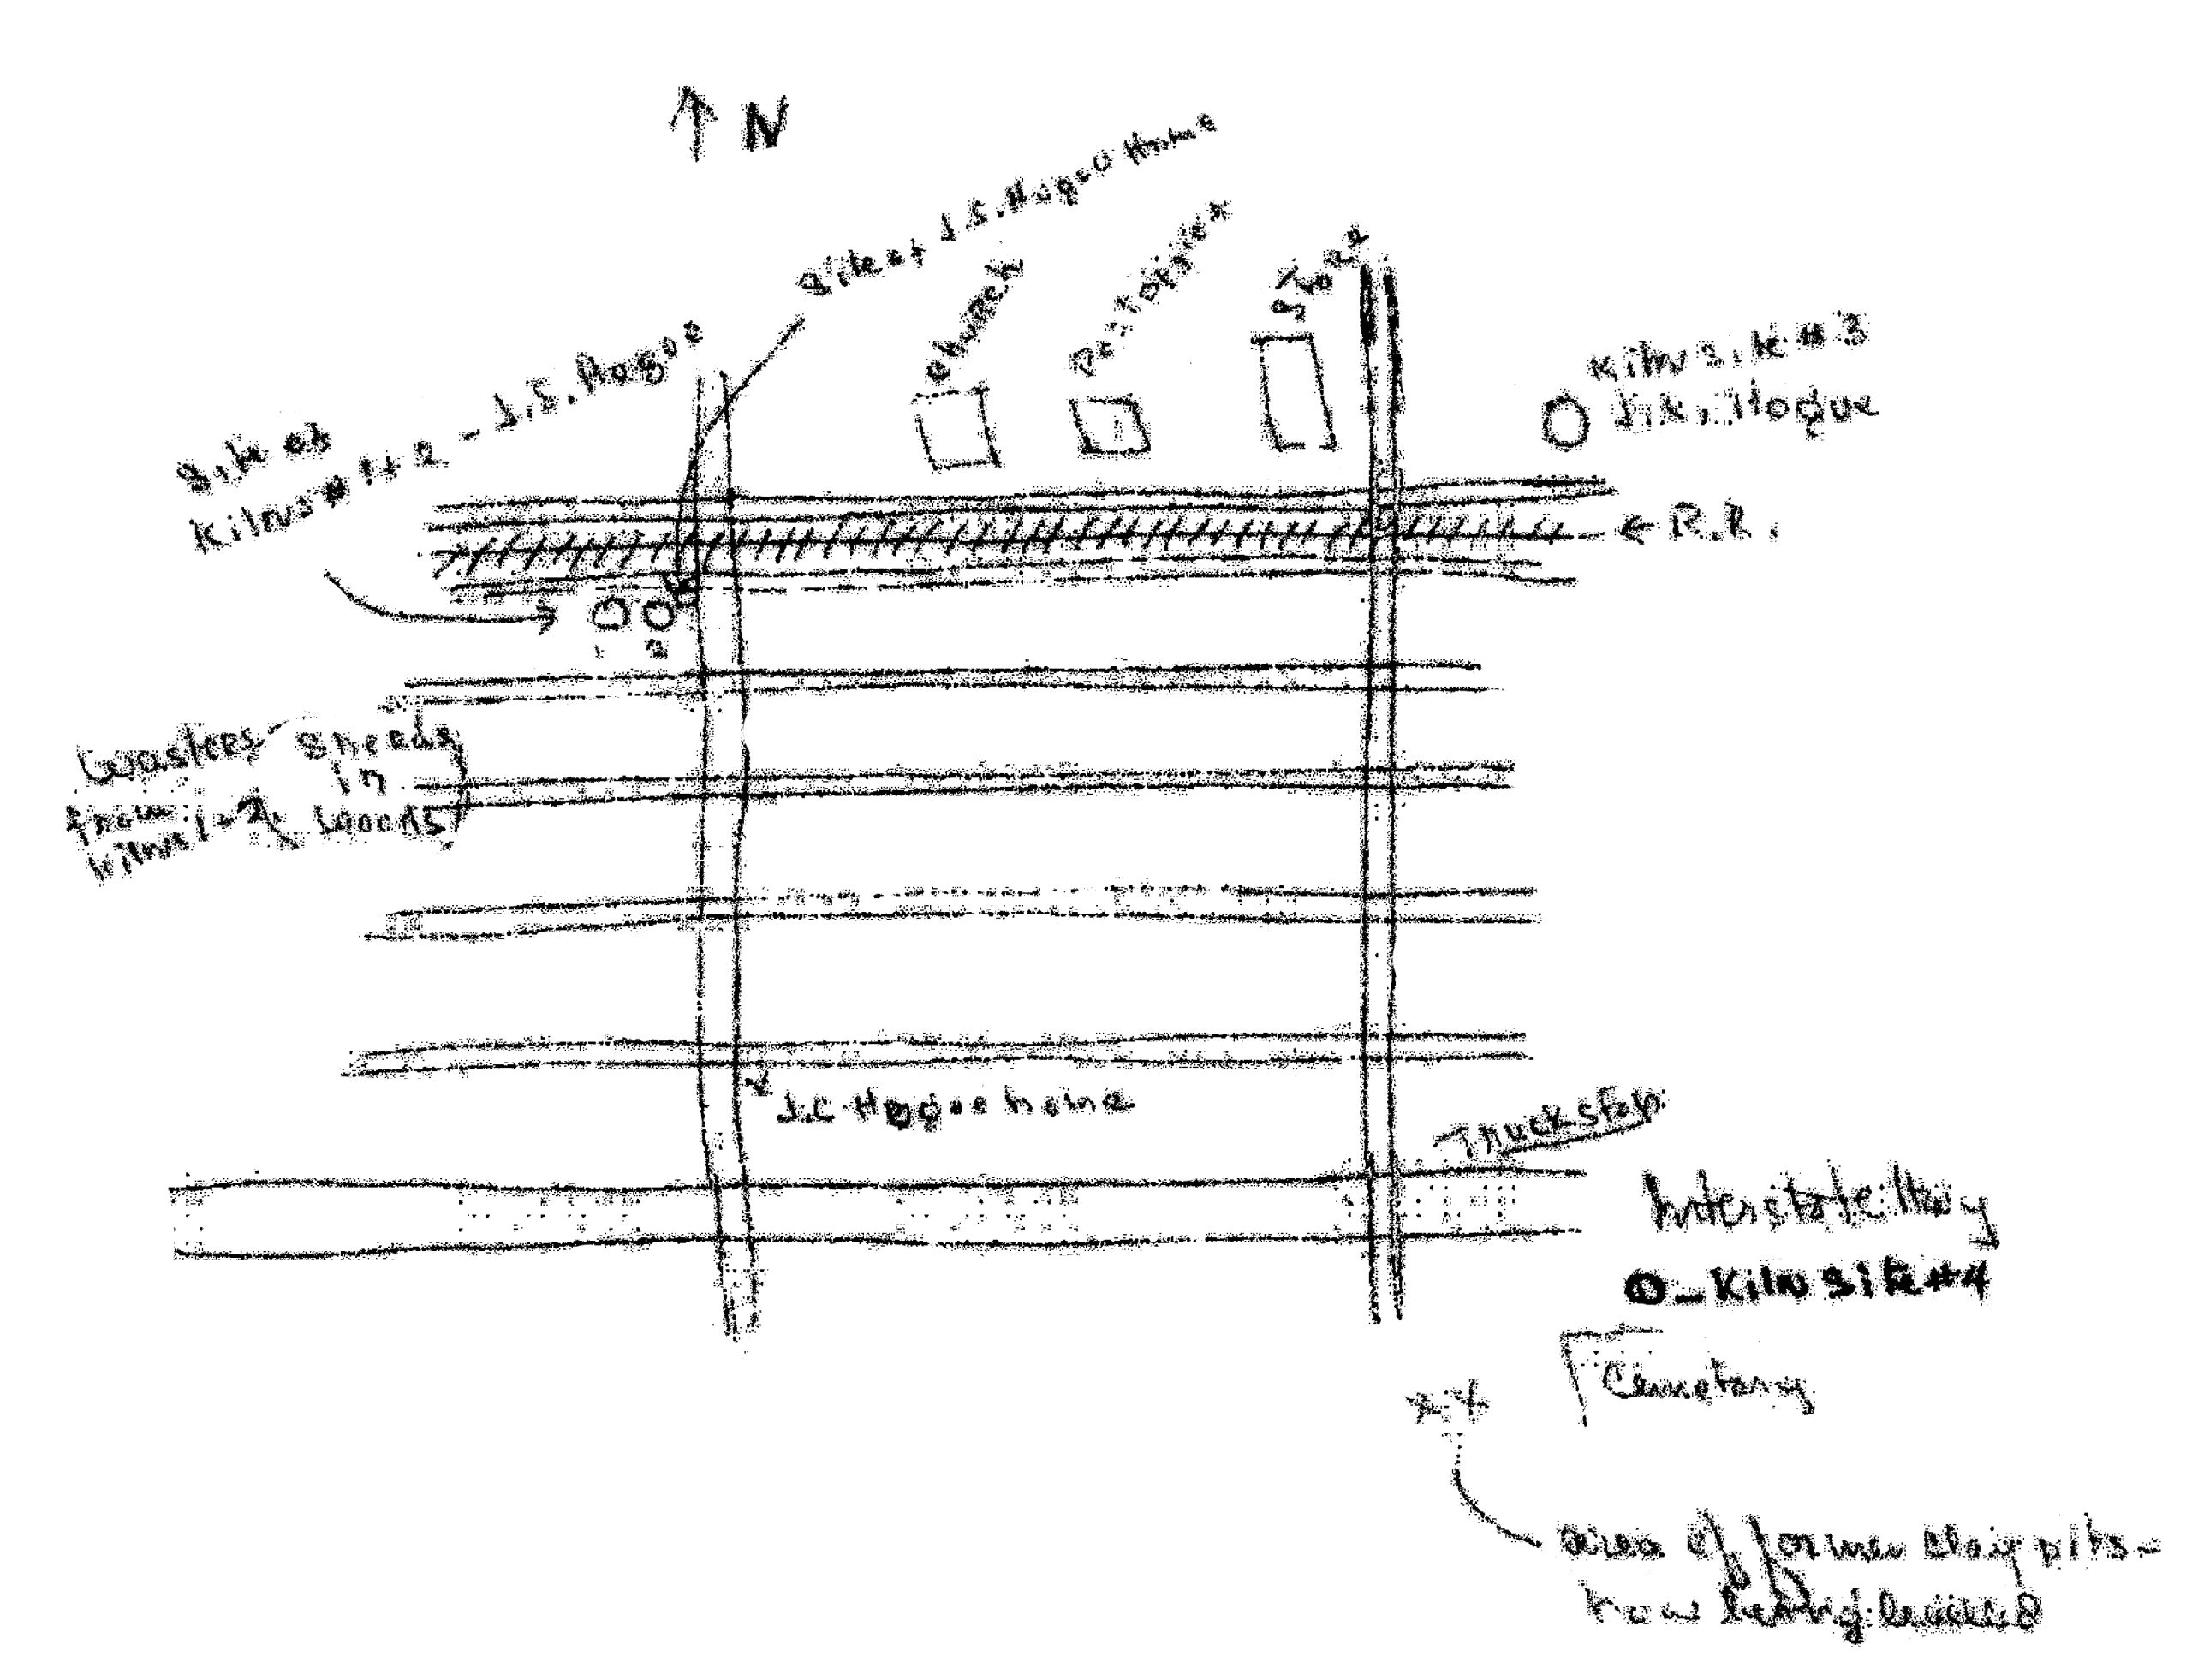 ↑ N
Site of J.S. Hogue Home
Church
Post office
Store
Site of
Kilns # 1+2 - J.S. Hogue
Kiln site #3
J.K. Hogue
← R.R.
1 2
Wasters
from
Kilns 1-2
in
woods
J.C. Hogue home
Truck stop
Interstate Hwy
O - Kiln site #4
Cemetary
x x
area of former clay pits -
now being leveled